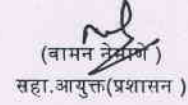 (वामन नेमाणे )
सहा.आयुक्त(प्रशासन )